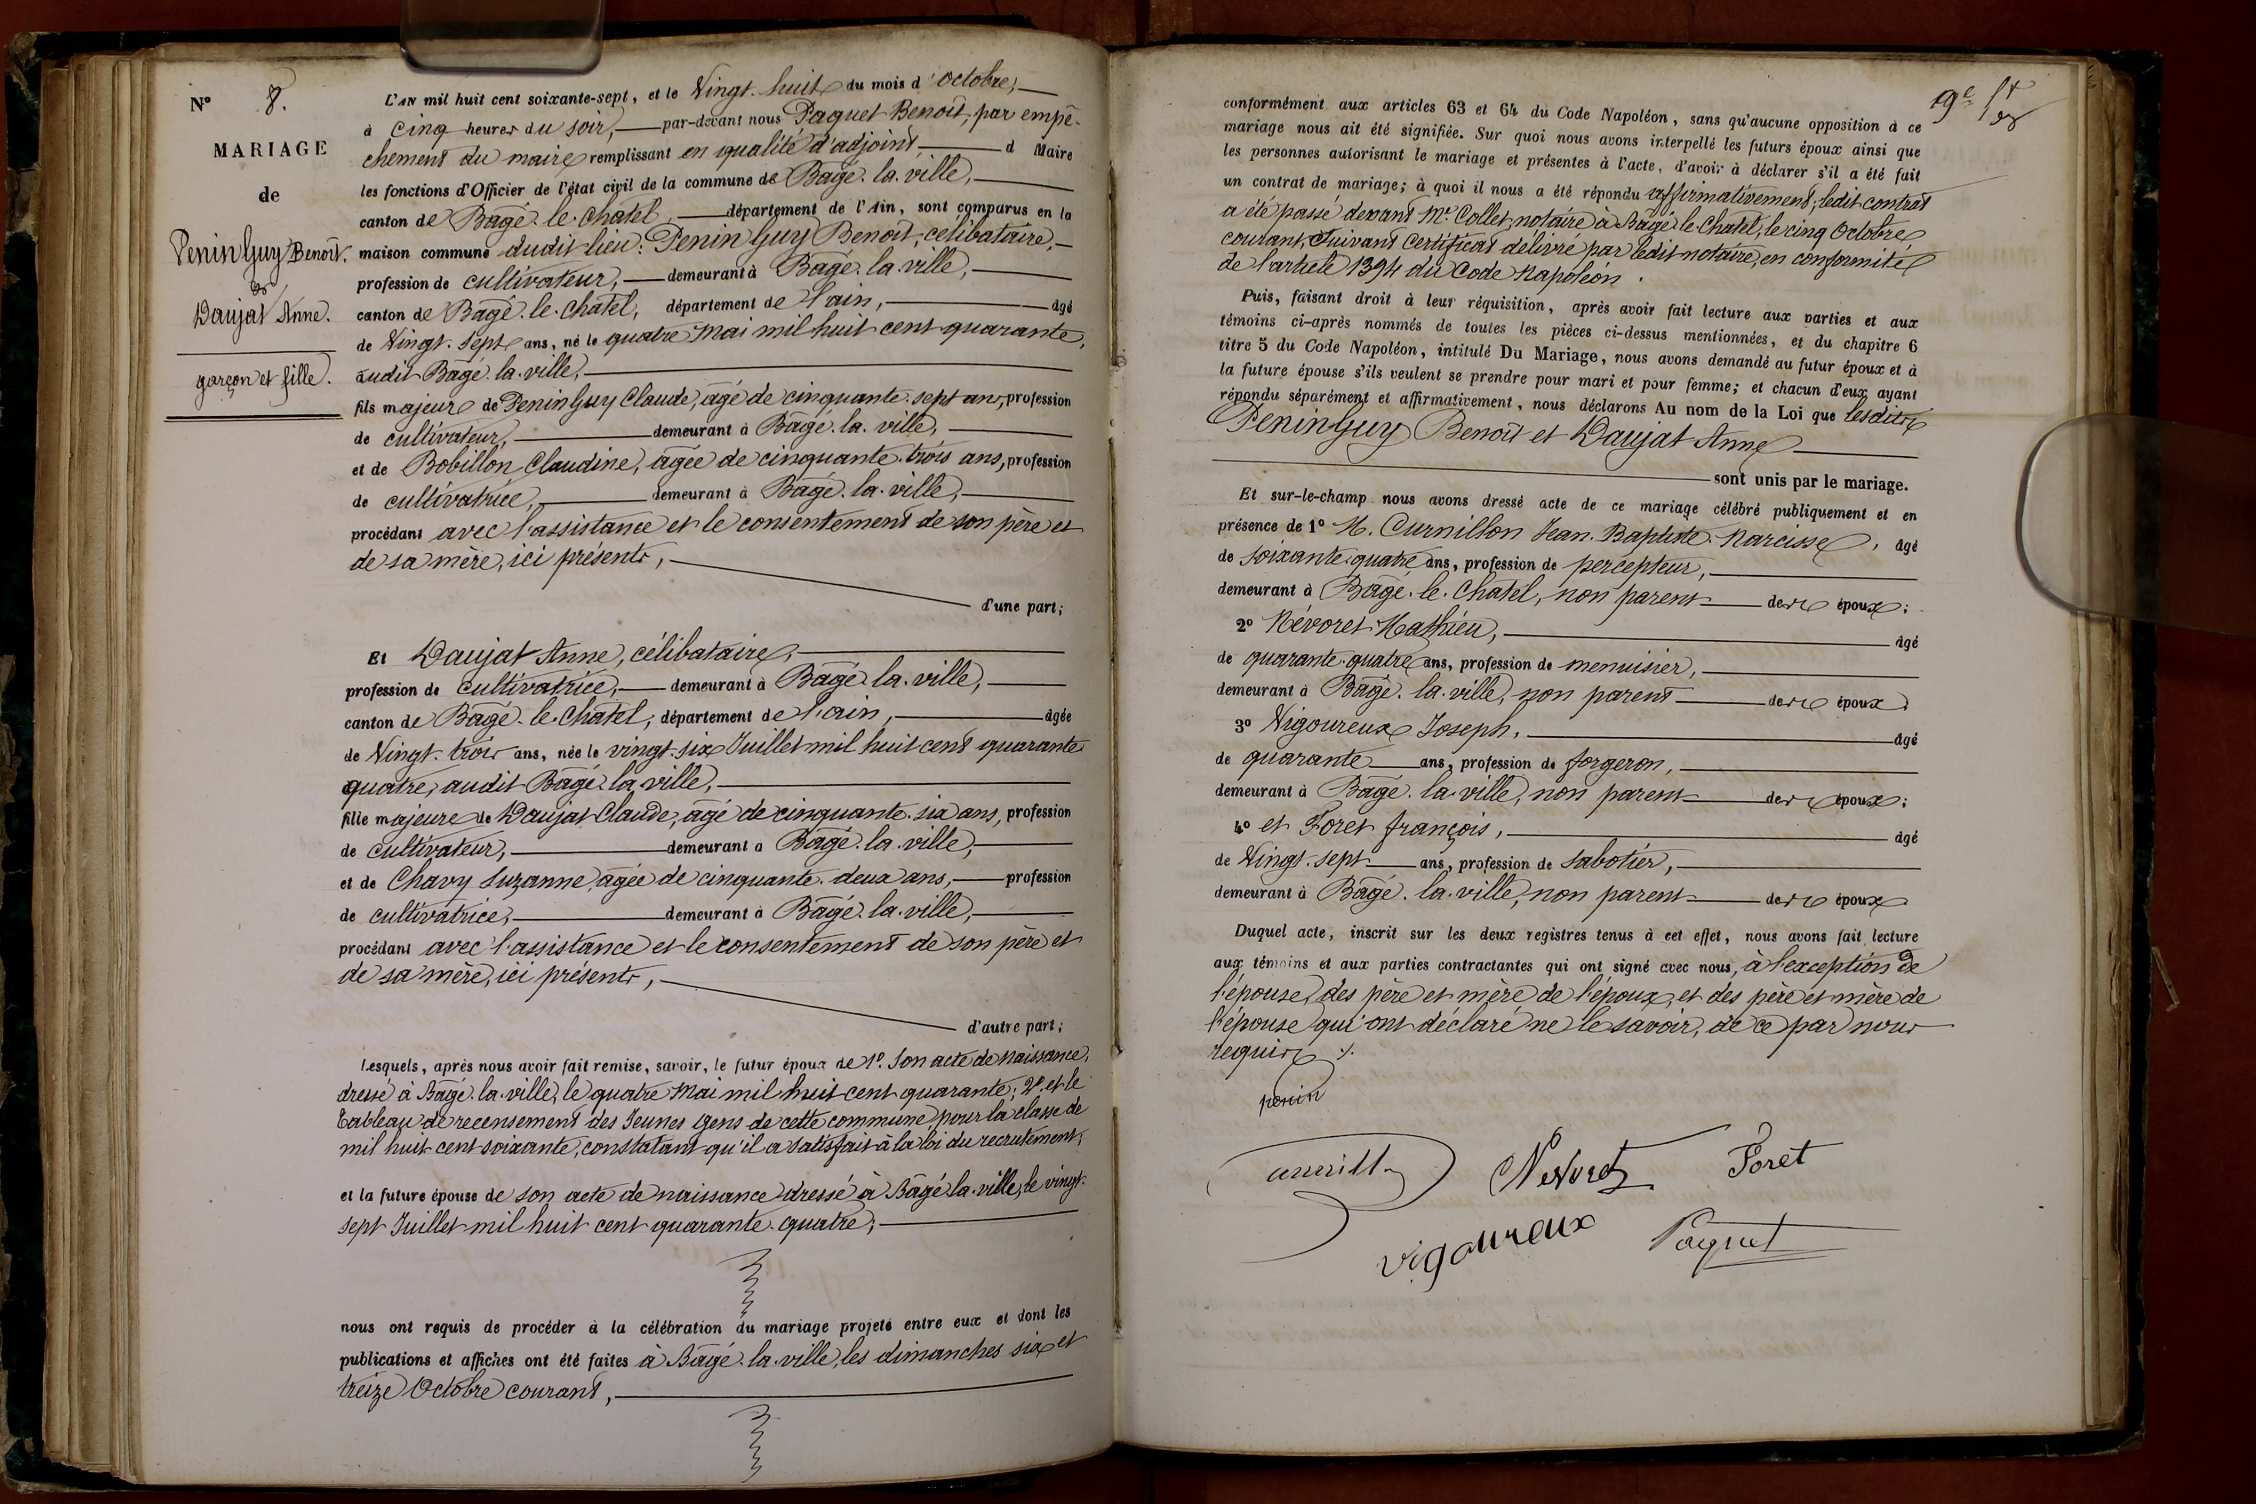 N° 8.
MARIAGE
de
Penin Guy Benoît.
et
Daujat Anne.
garçon et fille.
L'AN mil huit cent soixante-sept, et le Vingt-huit du mois d'Octobre,
à Cinq heures du soir, par-devant nous Paquet Benoît, par empê-
chement du maire remplissant en qualité d'adjoint, d Maire
les fonctions d'Officier de l'état civil de la commune de Bâgé-la-ville,
canton de Bâgé-le-Chatel, département de l'Ain, sont comparus en la
maison commune dudit lieu: Penin Guy Benoît, célibataire,
profession de cultivateur, demeurant à Bâgé-la-ville,
canton de Bâgé-le-Chatel, département de l'ain, âgé
de Vingt-sept ans, né le quatre Mai mil huit cent quarante,
audit Bâgé-la-ville,
fils majeur de Penin Guy Claude, âgé de cinquante-sept ans, profession
de cultivateur, demeurant à Bâgé-la-ville,
et de Bobillon Claudine, âgée de cinquante-trois ans, profession
de cultivatrice, demeurant à Bâgé-la-ville,
procédant avec l'assistance et le consentement de son père et
de sa mère, ici présents,
d'une part;
Et Daujat Anne, célibataire,
profession de cultivatrice, demeurant à Bâgé-la-ville,
canton de Bâgé-le-Chatel, département de l'ain, âgée
de Vingt-trois ans, née le vingt-six Juillet mil huit cent quarante
quatre, audit Bâgé-la-ville,
fille majeure de Daujat Claude, âgé de cinquante-six ans, profession
de cultivateur, demeurant à Bâgé-la-ville,
et de Chavy Suzanne, âgée de cinquante-deux ans, profession
de cultivatrice, demeurant à Bâgé-la-ville,
procédant avec l'assistance et le consentement de son père et
de sa mère, ici présents,
d'autre part;
Lesquels, après nous avoir fait remise, savoir, le futur époux de 1°. Son acte de naissance,
dressé à Bâgé-la-ville, le quatre Mai mil huit cent quarante; 2°. et le
Tableau de recensement des Jeunes Gens de cette commune, pour la classe de
mil huit cent soixante, constatant qu'il a satisfait à la loi du recrutement;
et la future épouse de son acte de naissance dressé à Bâgé-la-ville, le vingt-
sept Juillet mil huit cent quarante-quatre,
nous ont requis de procéder à la célébration du mariage projeté entre eux et dont les
publications et affiches ont été faites à Bâgé-la-ville, les dimanches six et
treize Octobre courant,
9e
conformément aux articles 63 et 64 du Code Napoléon, sans qu'aucune opposition à ce
mariage nous ait été signifiée. Sur quoi nous avons interpellé les futurs époux ainsi que
les personnes autorisant le mariage et présentes à l'acte, d'avoir à déclarer s'il a été fait
un contrat de mariage; à quoi il nous a été répondu affirmativement; ledit contrat
a été passé devant Me. Collet, notaire à Bâgé-le-Chatel, le cinq Octobre
courant, Suivant Certificat délivré par ledit notaire, en conformité
de l'article 1394 du Code Napoléon.
Puis, faisant droit à leur réquisition, après avoir fait lecture aux parties et aux
témoins ci-après nommés de toutes les pièces ci-dessus mentionnées, et du chapitre 6
titre 5 du Code Napoléon, intitulé Du Mariage, nous avons demandé au futur époux et à
la future épouse s'ils veulent se prendre pour mari et pour femme; et chacun d'eux ayant
répondu séparément et affirmativement, nous déclarons Au nom de la Loi que lesdits
Penin Guy Benoît et Daujat Anne
sont unis par le mariage.
Et sur-le-champ nous avons dressé acte de ce mariage célébré publiquement et en
présence de 1° M. Curnillon Jean-Baptiste-Narcisse, âgé
de soixante-quatre ans, profession de percepteur,
demeurant à Bâgé-le-Chatel, non parent des époux;
2° Névoret Mathieu, âgé
de quarante-quatre ans, profession de menuisier,
demeurant à Bâgé-la-ville, non parent des époux;
3° Vigoureux Joseph, âgé
de quarante ans, profession de forgeron,
demeurant à Bâgé-la-ville, non parent des époux;
4° et Foret françois, âgé
de Vingt-sept ans, profession de sabotier,
demeurant à Bâgé-la-ville, non parent des époux
Duquel acte, inscrit sur les deux registres tenus à cet effet, nous avons fait lecture
aux témoins et aux parties contractantes qui ont signé avec nous, à l'exception de
l'épouse, des père et mère de l'époux, et des père et mère de
l'épouse qui ont déclaré ne le savoir, de ce par nous
requis ./.
penin
Nevoret Foret
vigoureux Paquet